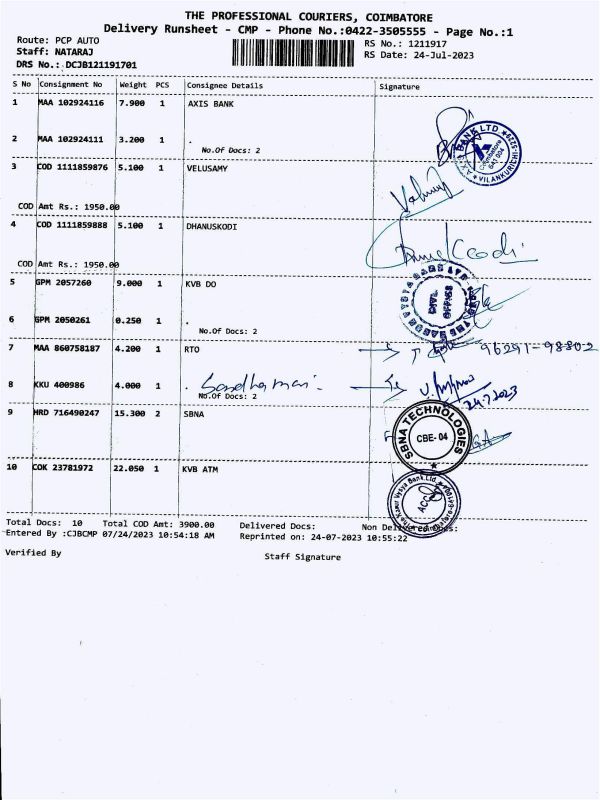 THE PROFESSIONAL COURIERS, COIMBATORE
Delivery Runsheet - CMP - Phone No.:0422-3505555 - Page No.:1
Route: PCP AUTO
RS No.: 1211917
Staff: NATARAJ
RS Date: 24-Jul-2023
DRS No.: DCJB121191701
S No Consignment No Weight PCS Consignee Details Signature
1 MAA 102924116 7.900 1 AXIS BANK
2 MAA 102924111 3.200 1 .
No.Of Docs: 2
AXIS BANK LTD
Coimbatore
VILANKURICHI
3 COD 1111859876 5.100 1 VELUSAMY
COD Amt Rs.: 1950.00
4 COD 1111859888 5.100 1 DHANUSKODI
COD Amt Rs.: 1950.00
5 GPM 2057260 9.000 1 KVB DO
6 GPM 2050261 0.250 1 .
No.Of Docs: 2
7 MAA 860758187 4.200 1 RTO
96291-98802
8 KKU 400986 4.000 1 .
No.Of Docs: 2
24.7.2023
9 HRD 716490247 15.300 2 SBNA
SBNA TECHNOLOGIES
CBE-04
10 COK 23781972 22.050 1 KVB ATM
Total Docs: 10 Total COD Amt: 3900.00 Delivered Docs: Non Delivered Docs:
Entered By :CJBCMP 07/24/2023 10:54:18 AM Reprinted on: 24-07-2023 10:55:22
Verified By
Staff Signature